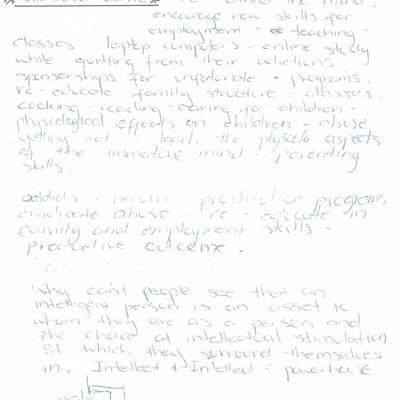 the mind.
encourage new skills for
employment - teaching -
classes - laptop computers - online study
while quitting from their adictions.
sponserships for unfortunate - programs.
re-educate family structure - classes.
cooking - reading - caring for children -
physcological effects on children - abuse
yelling ect - teach the physcolo aspects
of the immature mind - parenting
skills.
addicts - heroin - prostitution programs
eradicate abuse - re-educate in
family and employment skills -
productive outcome.
Why can't people see that an
intelligent person is an asset to
whom they are as a person and
the choice of intellectual stimulation
of which they surround themselves
in. Intellect + Intellect = powerhouse